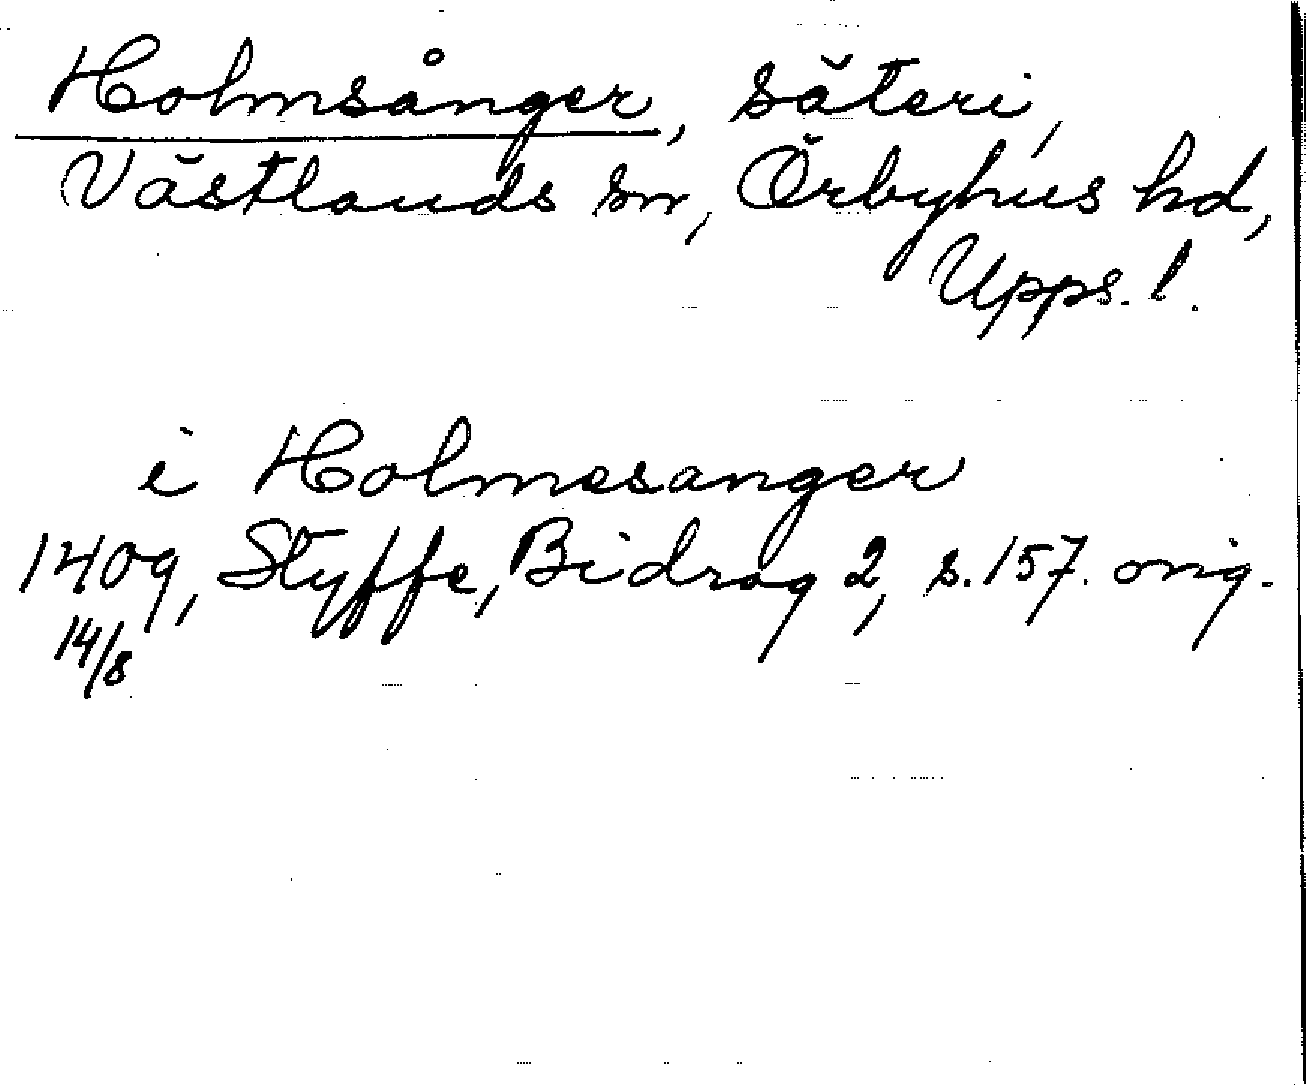 Holmsånger, säteri,
Västlands sn, Örbyhus hd,
Upps. l.
i Holmesanger
1409, Styffe, Bidrag 2, s. 157. orig.
14/8